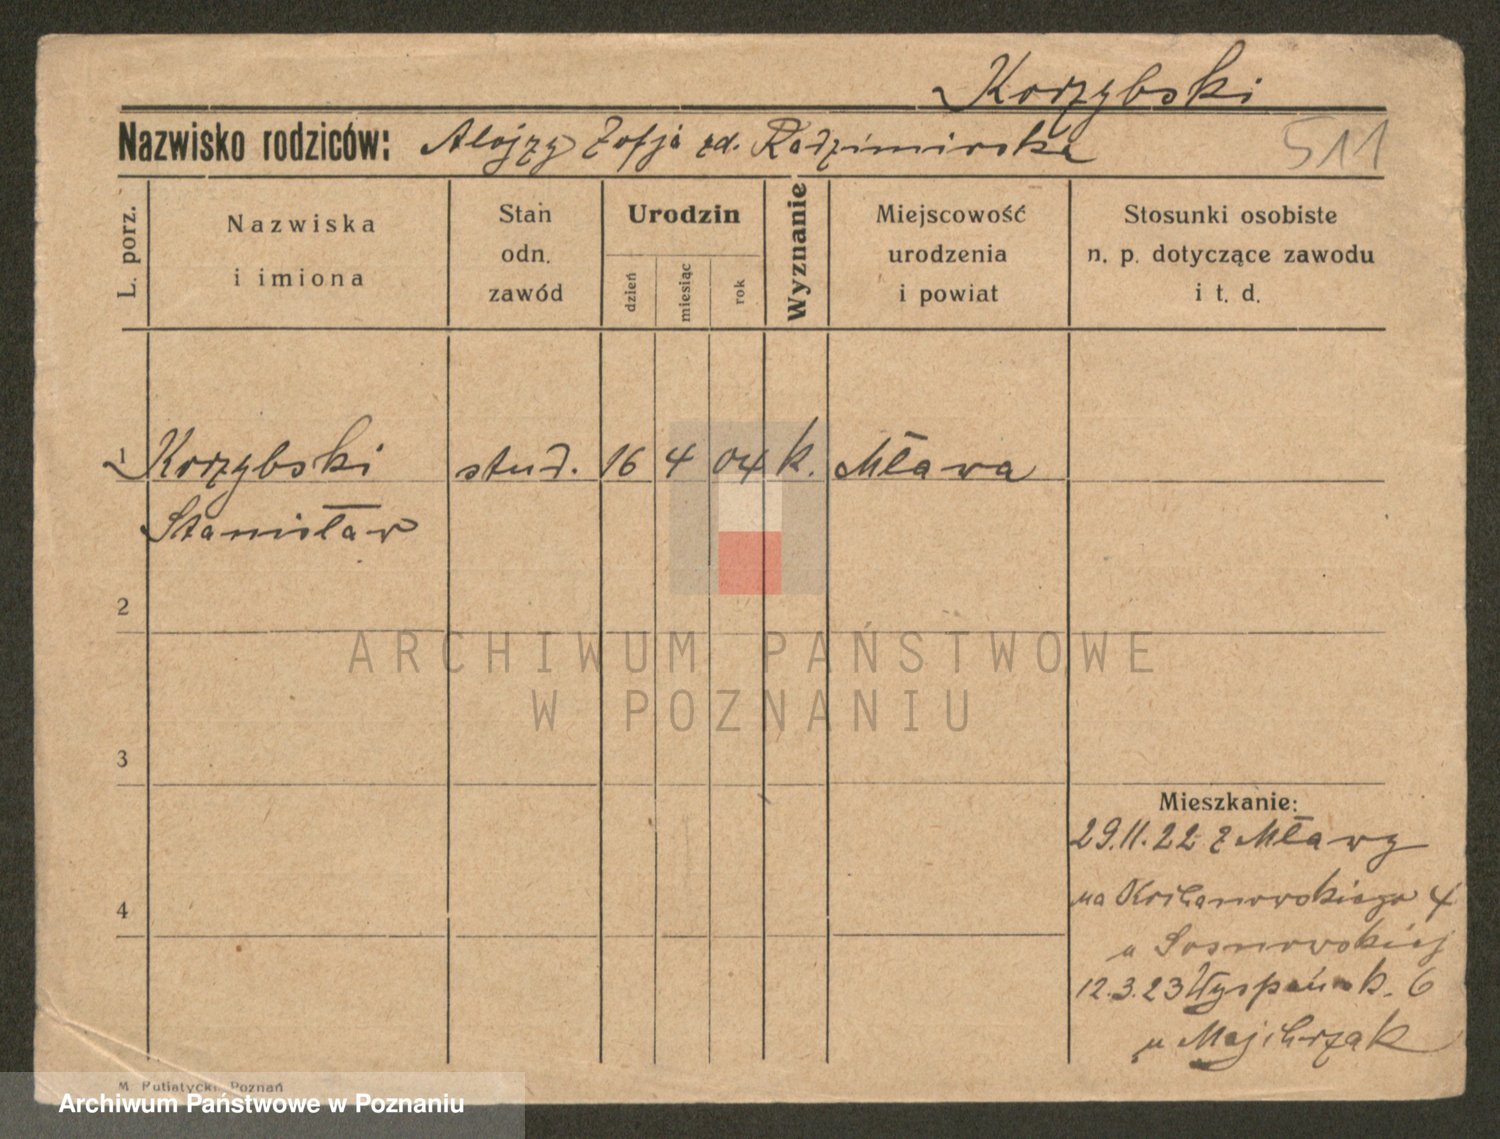 Korzybski
Nazwisko rodziców: Alojzy Zofja zd. Radzimirska
511
L. porz.
Nazwiska
i imiona
Stan
odn.
zawód
Urodzin
dzień
miesiąc
rok
Wyznanie
Miejscowość
urodzenia
i powiat
Stosunki osobiste
n. p. dotyczące zawodu
i t. d.
1 Korzybski stud. 16 4 04 k. Mława
Stanisław
2
3
4
Mieszkanie:
29.11.22 z Mławy
na 4
u Sosnowskiej
12.3.23 Wyspiańsk. 6
u Majchrzak
ARCHIWUM PAŃSTWOWE
W POZNANIU
M. Putiatycki, Poznań
Archiwum Państwowe w Poznaniu